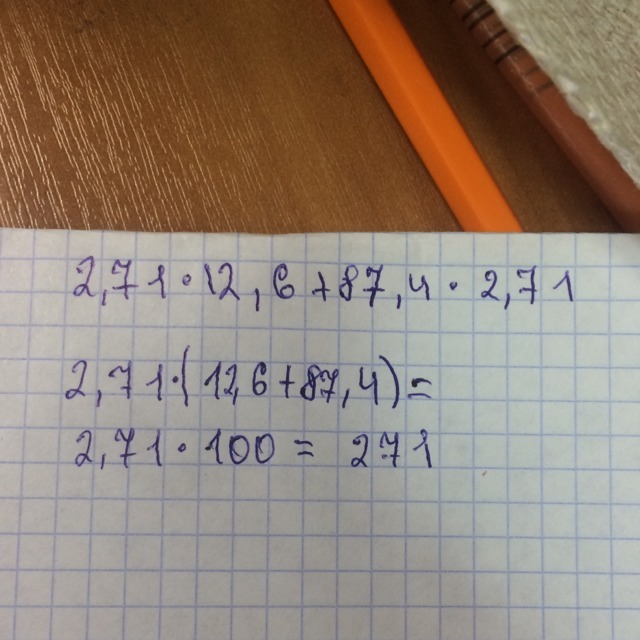 2,71·12,6+87,4·2,71
2,71·(12,6+87,4)=
2,71·100=271